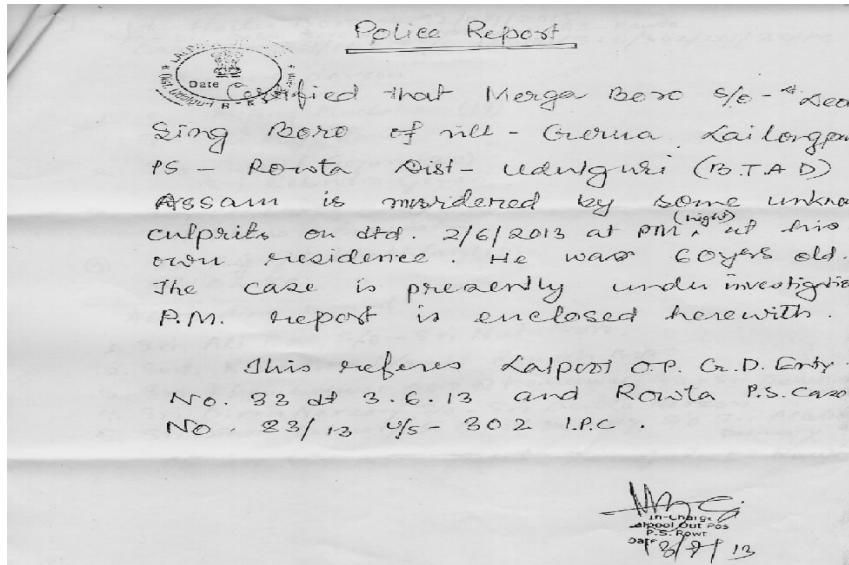 Police Report
Date
Certified that Merga Boro S/o - Lt
Sing Boro of vill - Goroma
PS - Rowta Dist - Udalguri (B.T.A.D)
Assam is murdered by some
culprits on dtd. 2/6/2013 at PM (night), at his
own residence. He was 60yrs old.
The case is presently under
P.M. report is enclosed herewith.
This referes Lalpool O.P. G.D. Enty
No. 33 dt 3.6.13 and Rowta P.S. Case
No. 83/13 u/s - 302 I.P.C.
Out Pos
P.S. Rowt
Date